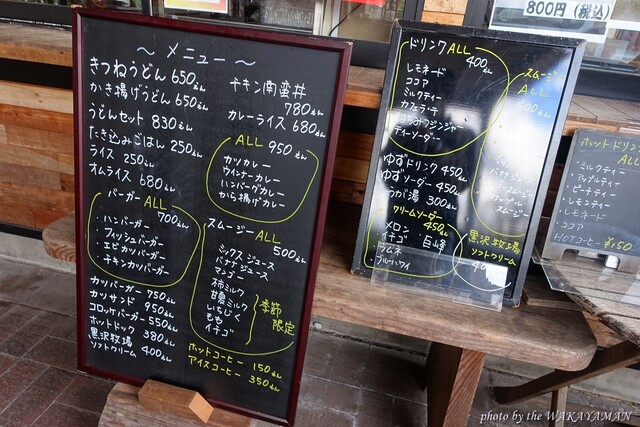 ～ メニュー ～
きつねうどん 650えん
かき揚げうどん 650えん
うどんセット 830えん
たき込みごはん 250えん
ライス 250えん
オムライス 680えん
バーガー ALL 700えん
・ハンバーガー
・フィッシュバーガー
・エビカツバーガー
・チキンカツバーガー
カツバーガー 750えん
カツサンド 950えん
コロッケバーガー 550えん
ホットドック 380えん
黒沢牧場
ソフトクリーム 400えん
チキン南蛮丼
780えん
カレーライス 680えん
ALL 950えん
カツカレー
ウインナーカレー
ハンバーグカレー
から揚げカレー
スムージー ALL
500えん
ミックスジュース
バナナジュース
マンゴー
柿ミルク
甘夏ミルク
いちじく
もも
イチゴ
季節
限定
ホットコーヒー 150えん
アイスコーヒー 350えん
ドリンク ALL
400えん
レモネード
ココア
ミルクティー
カフェラ・テ
はちみつジンジャー
ティーソーダー
ゆずドリンク 450えん
ゆずソーダー 450えん
300えん
クリームソーダー
450えん
メロン
イチゴ
巨峰
ラムネ
ブルーハワイ
スムージー
ALL
500えん
黒沢牧場
ソフトクリーム
ホットドリンク
ALL
・ミルクティー
・アップルティー
・ピーチティー
・レモンティー
・レモネード
・ココア
HOTコーヒー ¥150
800円(税込)
photo by the WAKAYAMAN